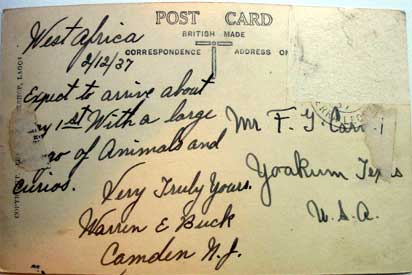 POST CARD
BRITISH MADE
CORRESPONDENCE
ADDRESS
West Africa
2/12/37
Expect to arrive about
1st With a large
of Animals and
Curios.
Very Truly Yours,
Warren E Buck
Camden N.J.
Mr F. G.
Yoakum Texas
U.S.A.